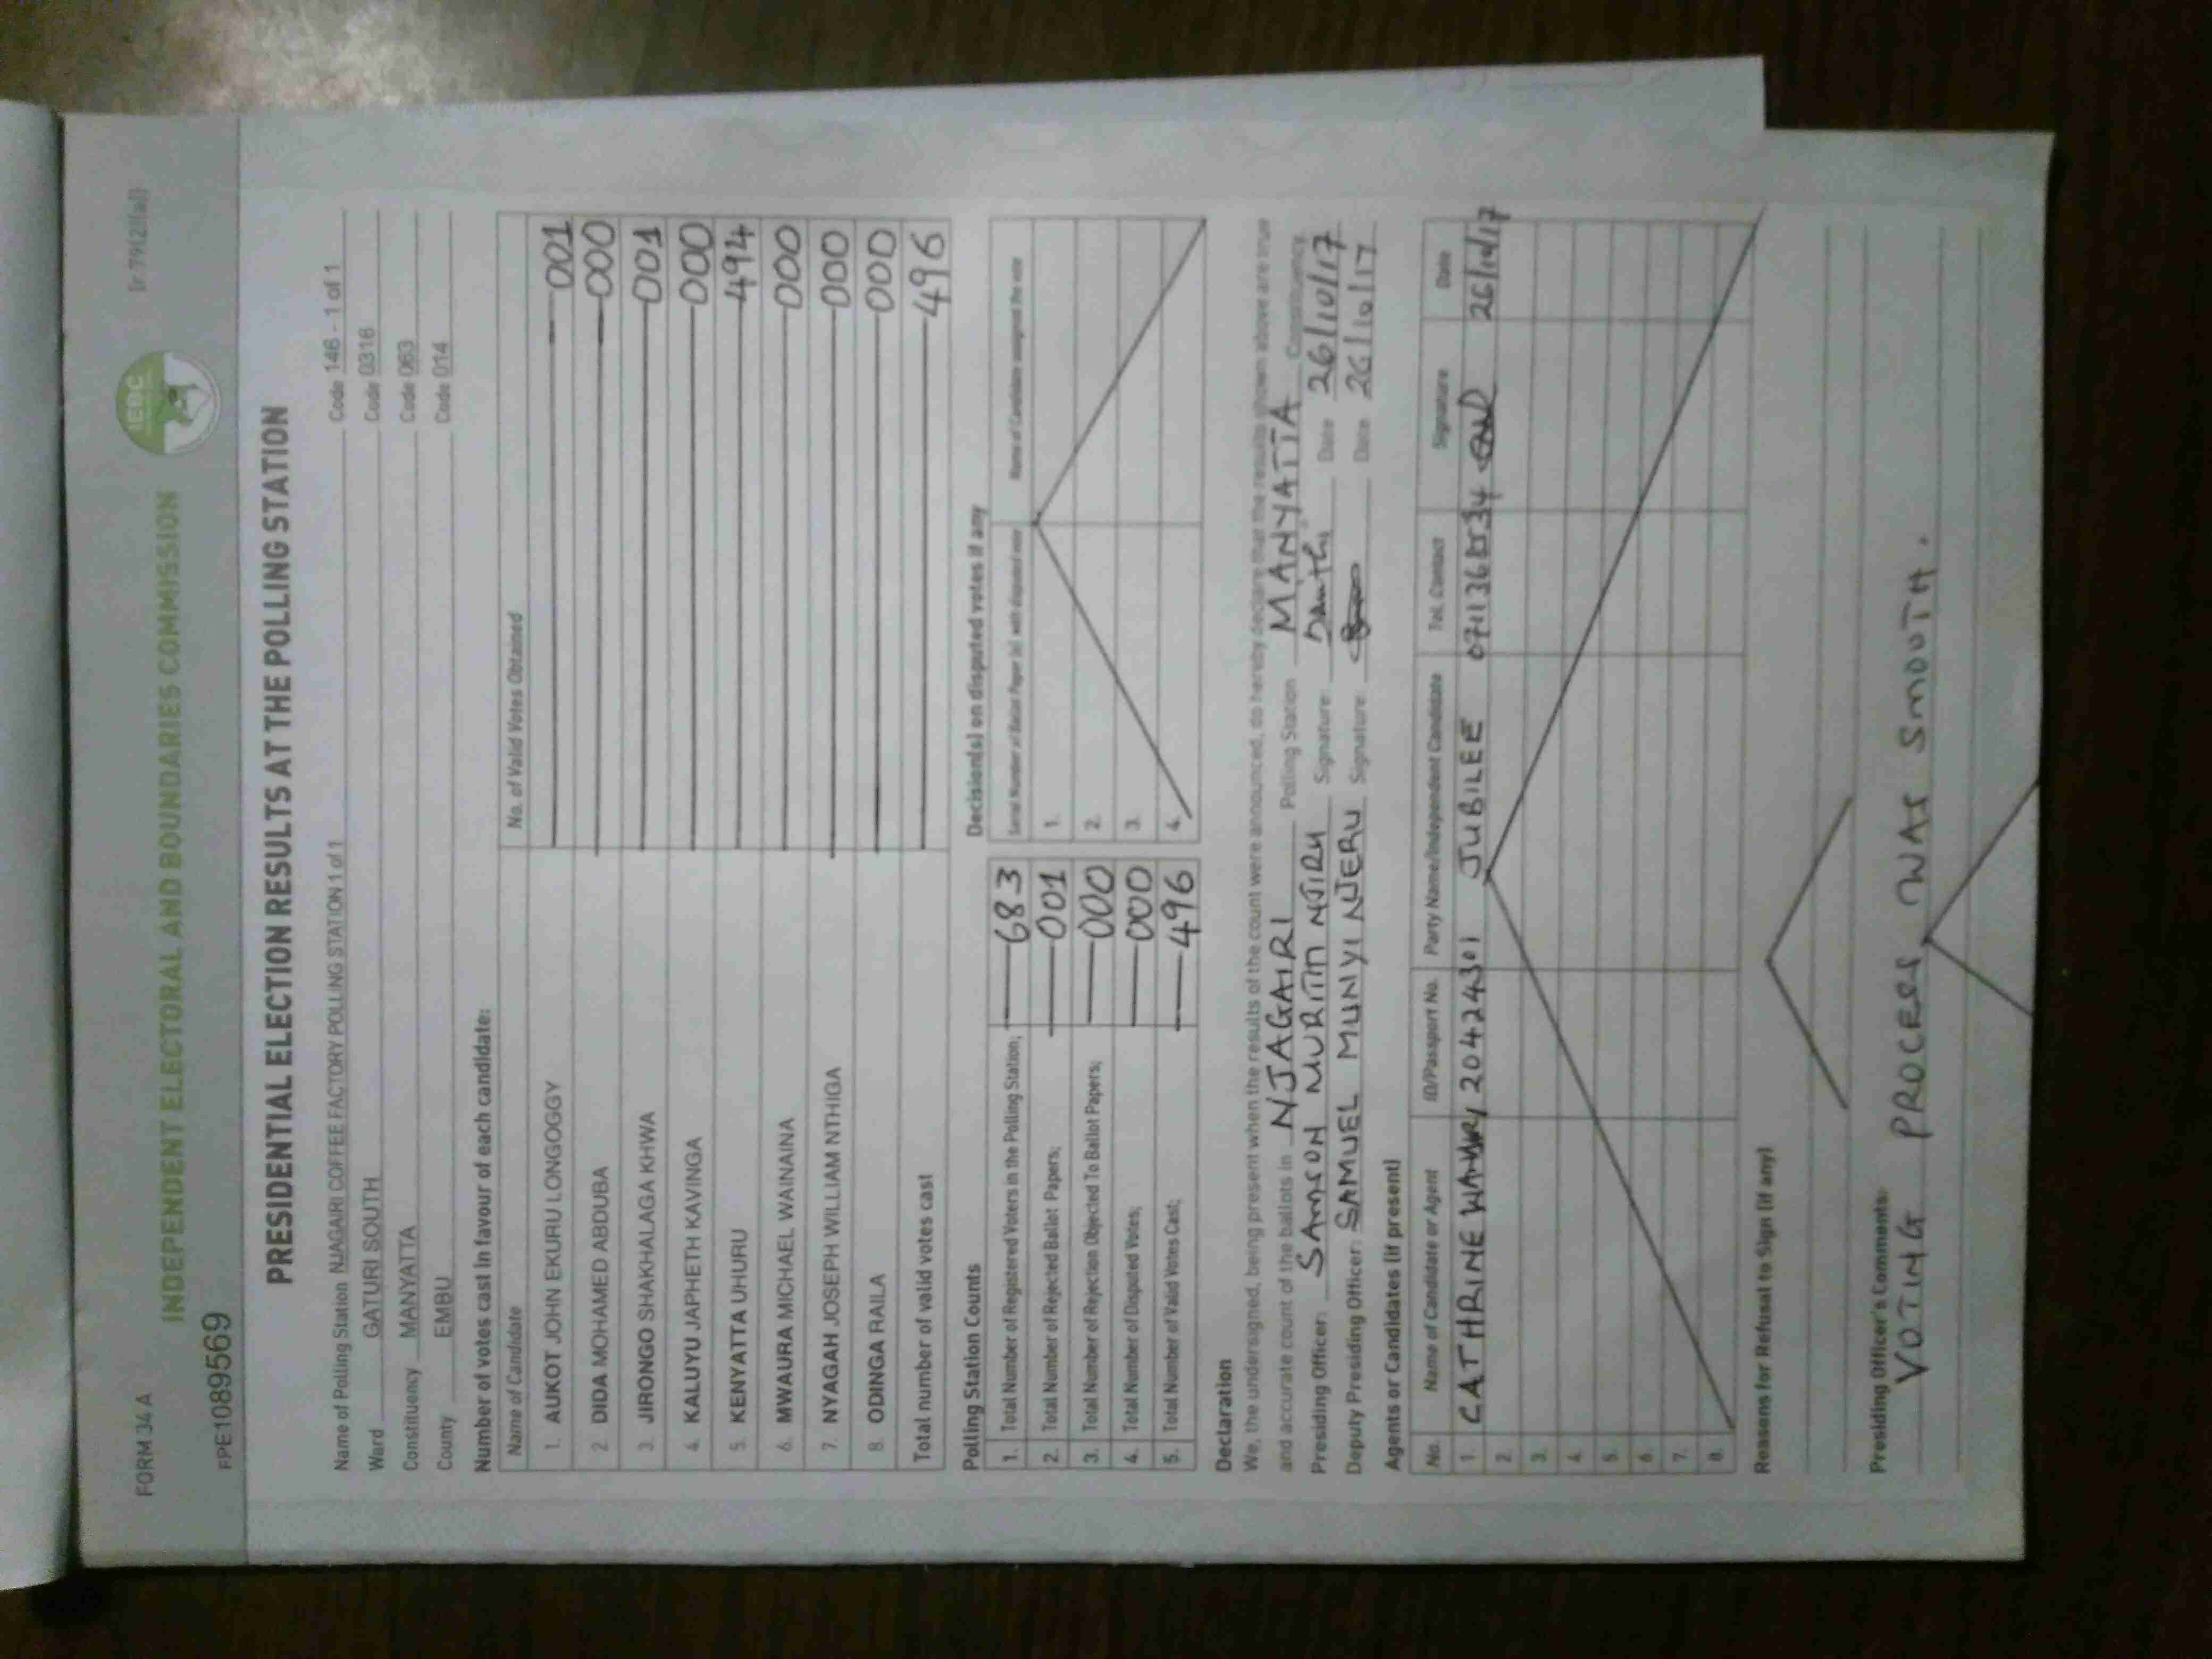 FORM 34 A
[r 79(2)(a)]
IEBC
INDEPENDENT ELECTORAL AND BOUNDARIES COMMISSION
FPE1089569
PRESIDENTIAL ELECTION RESULTS AT THE POLLING STATION
Name of Polling Station NJAGAIRI COFFEE FACTORY POLLING STATION 1 of 1 Code 146 - 1 of 1
Ward GATURI SOUTH Code 0316
Constituency MANYATTA Code 063
County EMBU Code 014
Number of votes cast in favour of each candidate:
Name of Candidate No. of Valid Votes Obtained
1. AUKOT JOHN EKURU LONGOGGY 001
2. DIDA MOHAMED ABDUBA 000
3. JIRONGO SHAKHALAGA KHWA 001
4. KALUYU JAPHETH KAVINGA 000
5. KENYATTA UHURU 494
6. MWAURA MICHAEL WAINAINA 000
7. NYAGAH JOSEPH WILLIAM NTHIGA 000
8. ODINGA RAILA 000
Total number of valid votes cast 496
Polling Station Counts
1. Total Number of Registered Voters in the Polling Station; 683
2. Total Number of Rejected Ballot Papers; 001
3. Total Number of Rejection Objected To Ballot Papers; 000
4. Total Number of Disputed Votes; 000
5. Total Number of Valid Votes Cast; 496
Decision(s) on disputed votes if any
Serial Number of Ballot Paper (s) with disputed vote Name of Candidate assigned the vote
1.
2.
3.
4.
Declaration
We, the undersigned, being present when the results of the count were announced, do hereby declare that the results shown above are true
and accurate count of the ballots in NJAGAIRI Polling Station MANYATTA Constituency
Presiding Officer: SAMSON MURIITHI NJIRU Signature: Date 26/10/17
Deputy Presiding Officer: SAMUEL MUNYI NJERU Signature: Date 26/10/17
Agents or Candidates (if present)
No. Name of Candidate or Agent ID/Passport No. Party Name/Independent Candidate Tel. Contact Signature Date
1. CATHRINE 20424301 JUBILEE 26/10/17
2.
3.
4.
5.
6.
7.
8.
Reasons for Refusal to Sign (if any)
Presiding Officer's Comments:
VOTING PROCESS WAS SMOOTH.